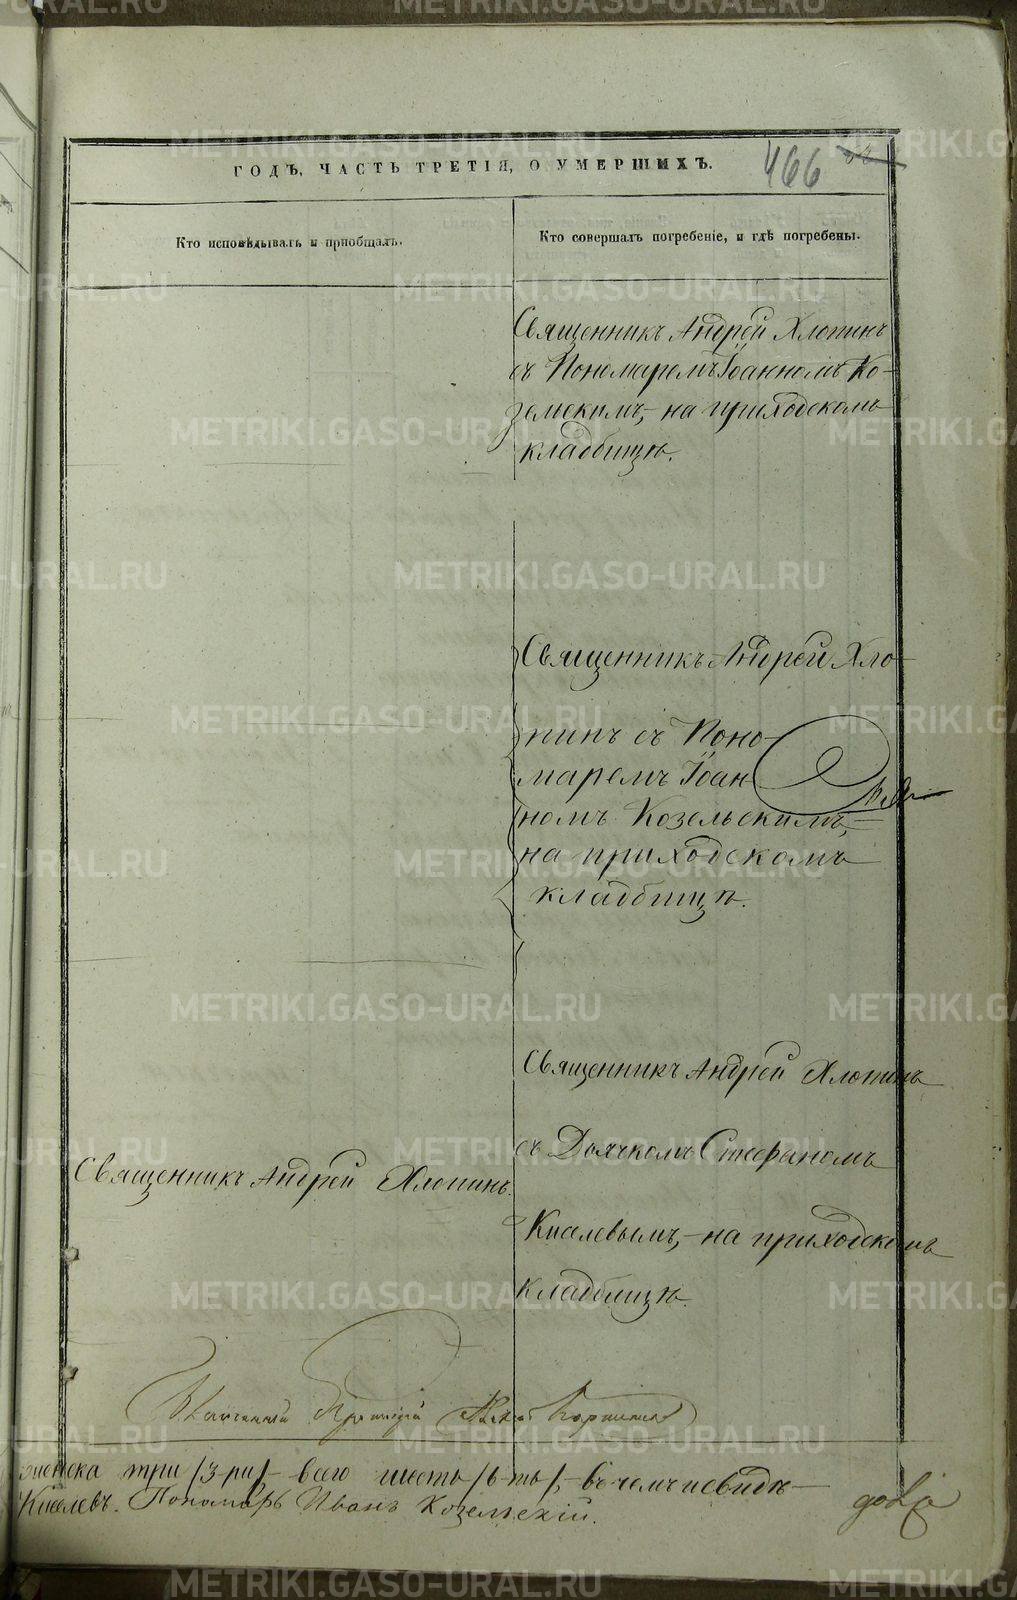 ГОДЪ, ЧАСТЬ ТРЕТІЯ, О УМЕРШИХЪ.
466
Кто исповѣдывалъ и пріобщалъ.
Кто совершалъ погребеніе, и гдѣ погребены.
Священникъ Андрей Хлопинъ
съ Пономаремъ Іоанномъ Ко-
земскимъ, на приходскомъ
кладбищѣ.
Священникъ Андрей Хло-
пинъ съ Поно-
маремъ Іоан-
номъ Козельскимъ,
на приходскомъ
кладбищѣ.
Священникъ Андрей Хлопинъ
съ Дьячкомъ Стефаномъ
Киселевымъ, на приходскомъ
кладбищѣ.
Священникъ Андрей Хлопинъ.
женска три /3-ри/ всего шесть /6-ть/, въ чемъ и свидѣ-
Киселевъ. Пономарь Иванъ Козельскій.
METRIKI.GASO-URAL.RU